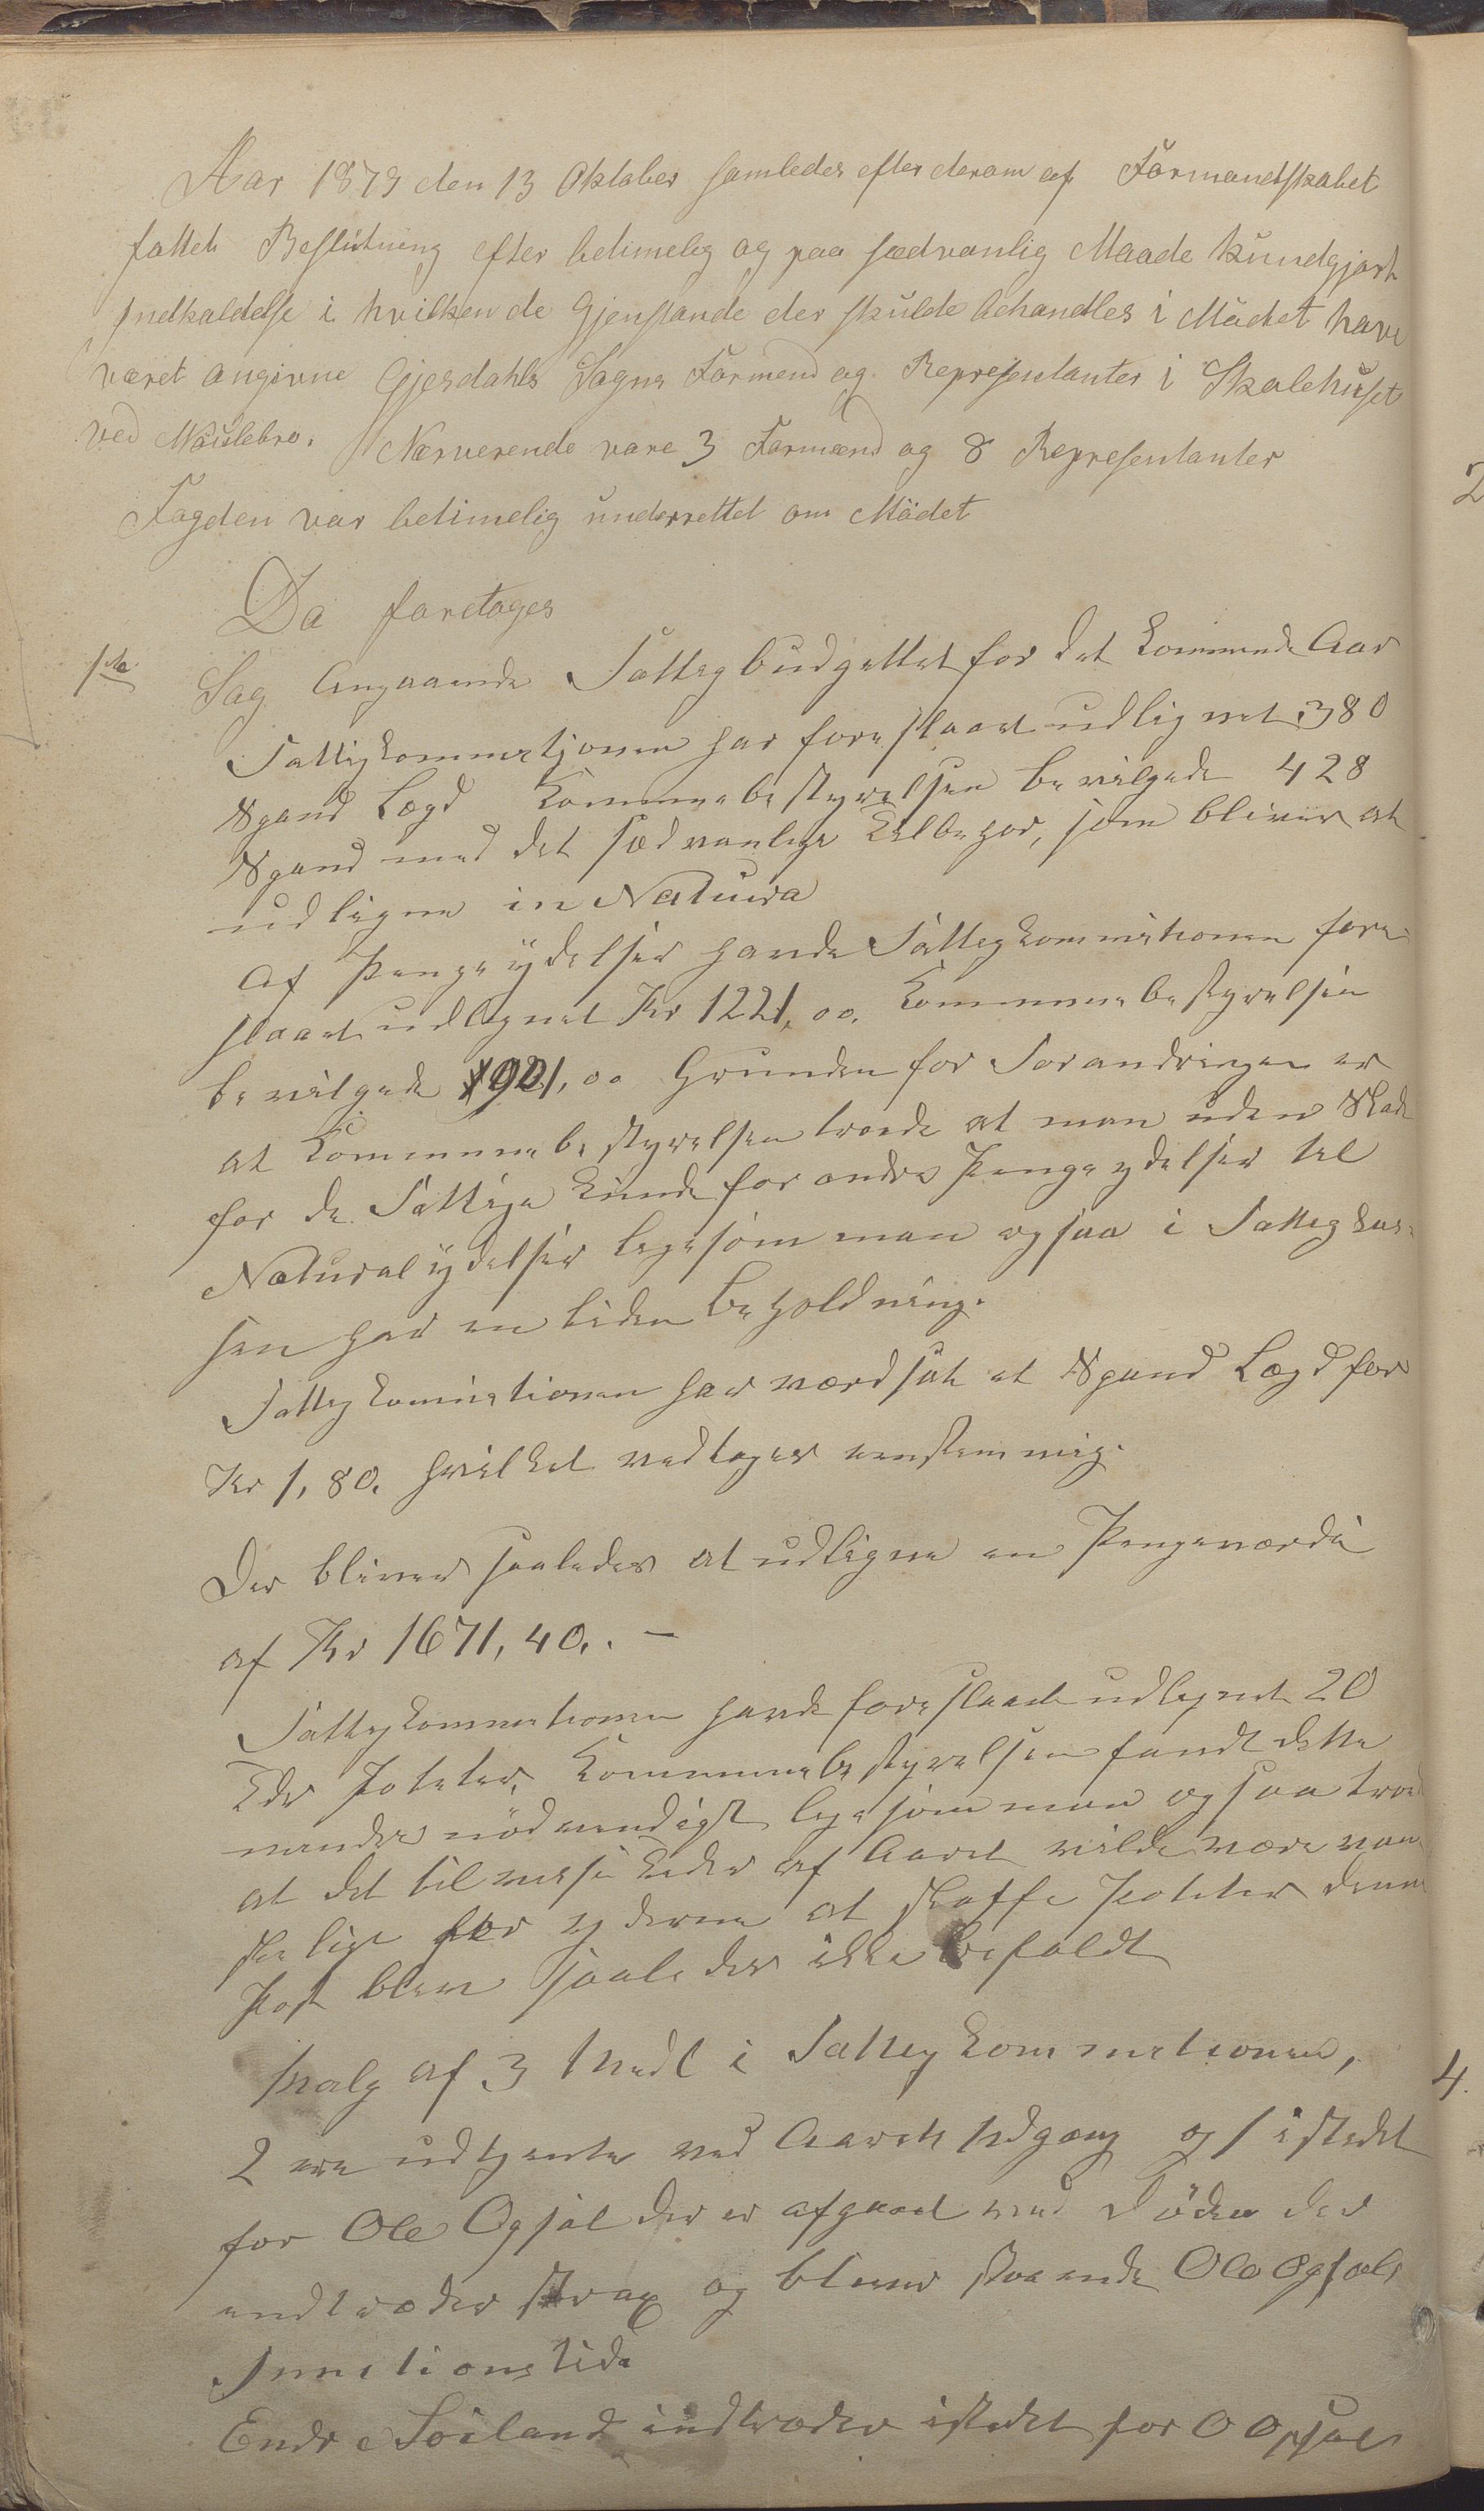 Aar 1879 den 13 Oktober samledes efter derom af Formandskabet
fattet Beslutning efter betimelig og paa sædvanlig Maade kundgjort
Indkaldelse i hvilken de Gjenstande der skulde behandles i Mödet have
været angivne Gjesdahls Sogns Formend og Representanter i Skolehuset
ved Noulebro. Nærverende vare 3 Formænd og 8 Representanter
Fogden var betimelig underrettet om Mödet
Da foretages
1te Sag Angaaende Fattigbudgettet for det kommende Aar
Fattigkommetjonen har foreslaaet udlignet 380
Spand Lægd Kommunebestyrelsen bevilgede 428
Spand med det sædvanlige Tilbehør, som bliver at
udligne in Natura
Af Pengeydelser havde Fattigkommitionen fore-
slaaet udlignet Kr 1221,00. Kommunebestyrelsen
bevilgede 901,00 Grunden for Forandringen er
at Kommunebestyrelsen troede at man uden Skade
for de Fattige kunde forandre Pengeydelser til
Naturalydelser ligesom man ogsaa i Fattigkas-
sen har en liden Beholdning.
Fattigkomitionen har værdsat et Spand Lægd for
Kr 1,80. hvilket vedtoges enstemmig.
Der bliver saaledes at udligne en Pengeværdi
af Kr 1671,40. –
Fattigkommitionen havde foreslaaet udlignet 20
Tdr Poteter, Kommunebestyrelsen fandt dette
unödvendigt ligesom man ogsaa troede
at det til visse Tider af Aaret vilde være van-
skeligt for yderne at skaffe Poteter denne
Post blev saaledes ikke befaldt
Valg af 3 Medl i Fattigkommitionen,
2 ere udtjente ved Aarets Udgang og 1 istedet
for Ole Ogsal der er afgaaet ved Döden der
indtræder strax og bliver staaende Ole Ogsals
Funktionstid
Endre Söiland indtræder istedet for O Opsal